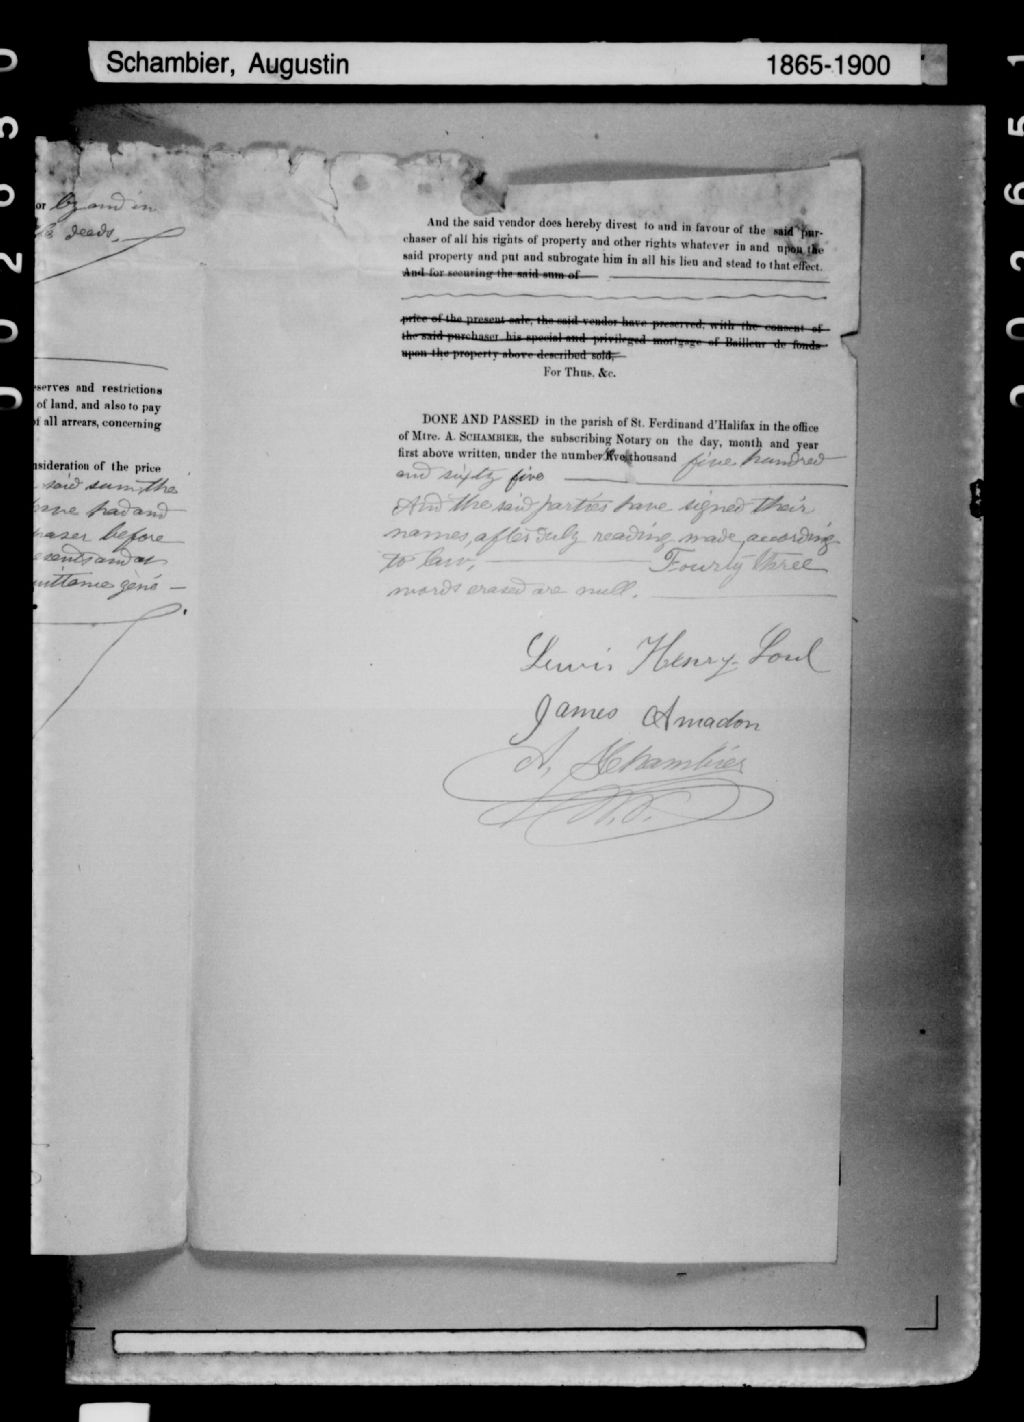 Schambier, Augustin 1865-1900
or by and in
deeds.
eserves and restrictions
of land, and also to pay
of all arrears, concerning
nsideration of the price
said sum, the
have had and
haser before
esents and as
uittance géné —
And the said vendor does hereby divest to and in favour of the said pur-
chaser of all his rights of property and other rights whatever in and upon the
said property and put and subrogate him in all his lieu and stead to that effect.
And for securing the said sum of
price of the present sale, the said vendor have preserved, with the consent of
the said purchaser, his special and privileged mortgage of Bailleur de fonds
upon the property above described sold,
For Thus, &c.
DONE AND PASSED in the parish of St. Ferdinand d'Halifax in the office
of Mtre. A. SCHAMBIER, the subscribing Notary on the day, month and year
first above written, under the number five thousand five hundred
and sixty five
And the said parties have signed their
names, after duly reading made, according
to law. Fourty three
words erased are null.
Lewis Henry
James Amadon
A. Schambier
N.P.